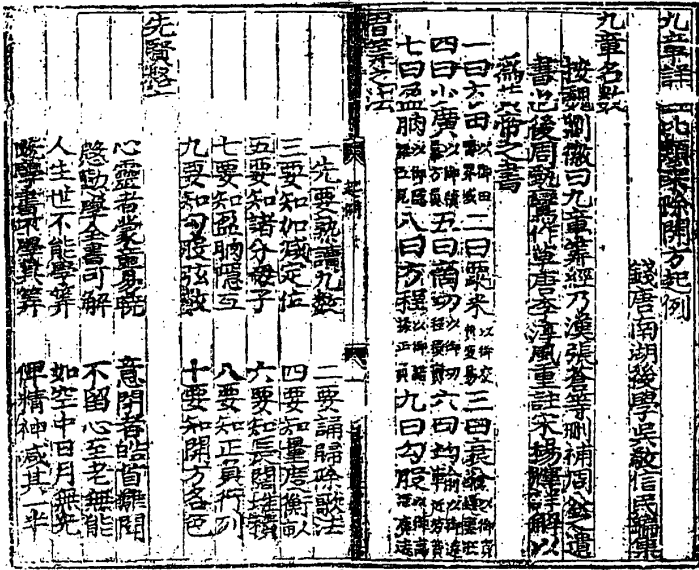 九章詳註比類乘除開方起例
錢唐南湖後學吳敬信民編集
九章名數
按魏劉徽曰九章筭經乃漢張蒼等刪補周公之遺
書也後周甄鸞作草唐李淳風重註宋楊輝詳解以
為黃帝之書
一曰方田以御田疇界域二曰粟米以御交質變易三曰衰分以御
四曰少廣以御積冪方圓五曰商功以御功程積實六曰均輸以御遠近勞費
七曰盈朒以御隱雜互見八曰方程以御錯糅正負九曰勾股以御高深廣遠
習筭之法
一先要熟讀九數 二要誦歸除歌法
三要知加減定位 四要知量度衡畝
五要知諸分母子 六要知長闊堆積
七要知盈朒隱互 八要知正負行列
九要知勾股弦數 十要知開方各色
先賢格
心靈者蒙童易曉 意閉者皓首難開
慇懃學全書可解 不留心至老無能
人生世不能學筭 如空中日月無光
學書不學其筭 俾精神減其一半